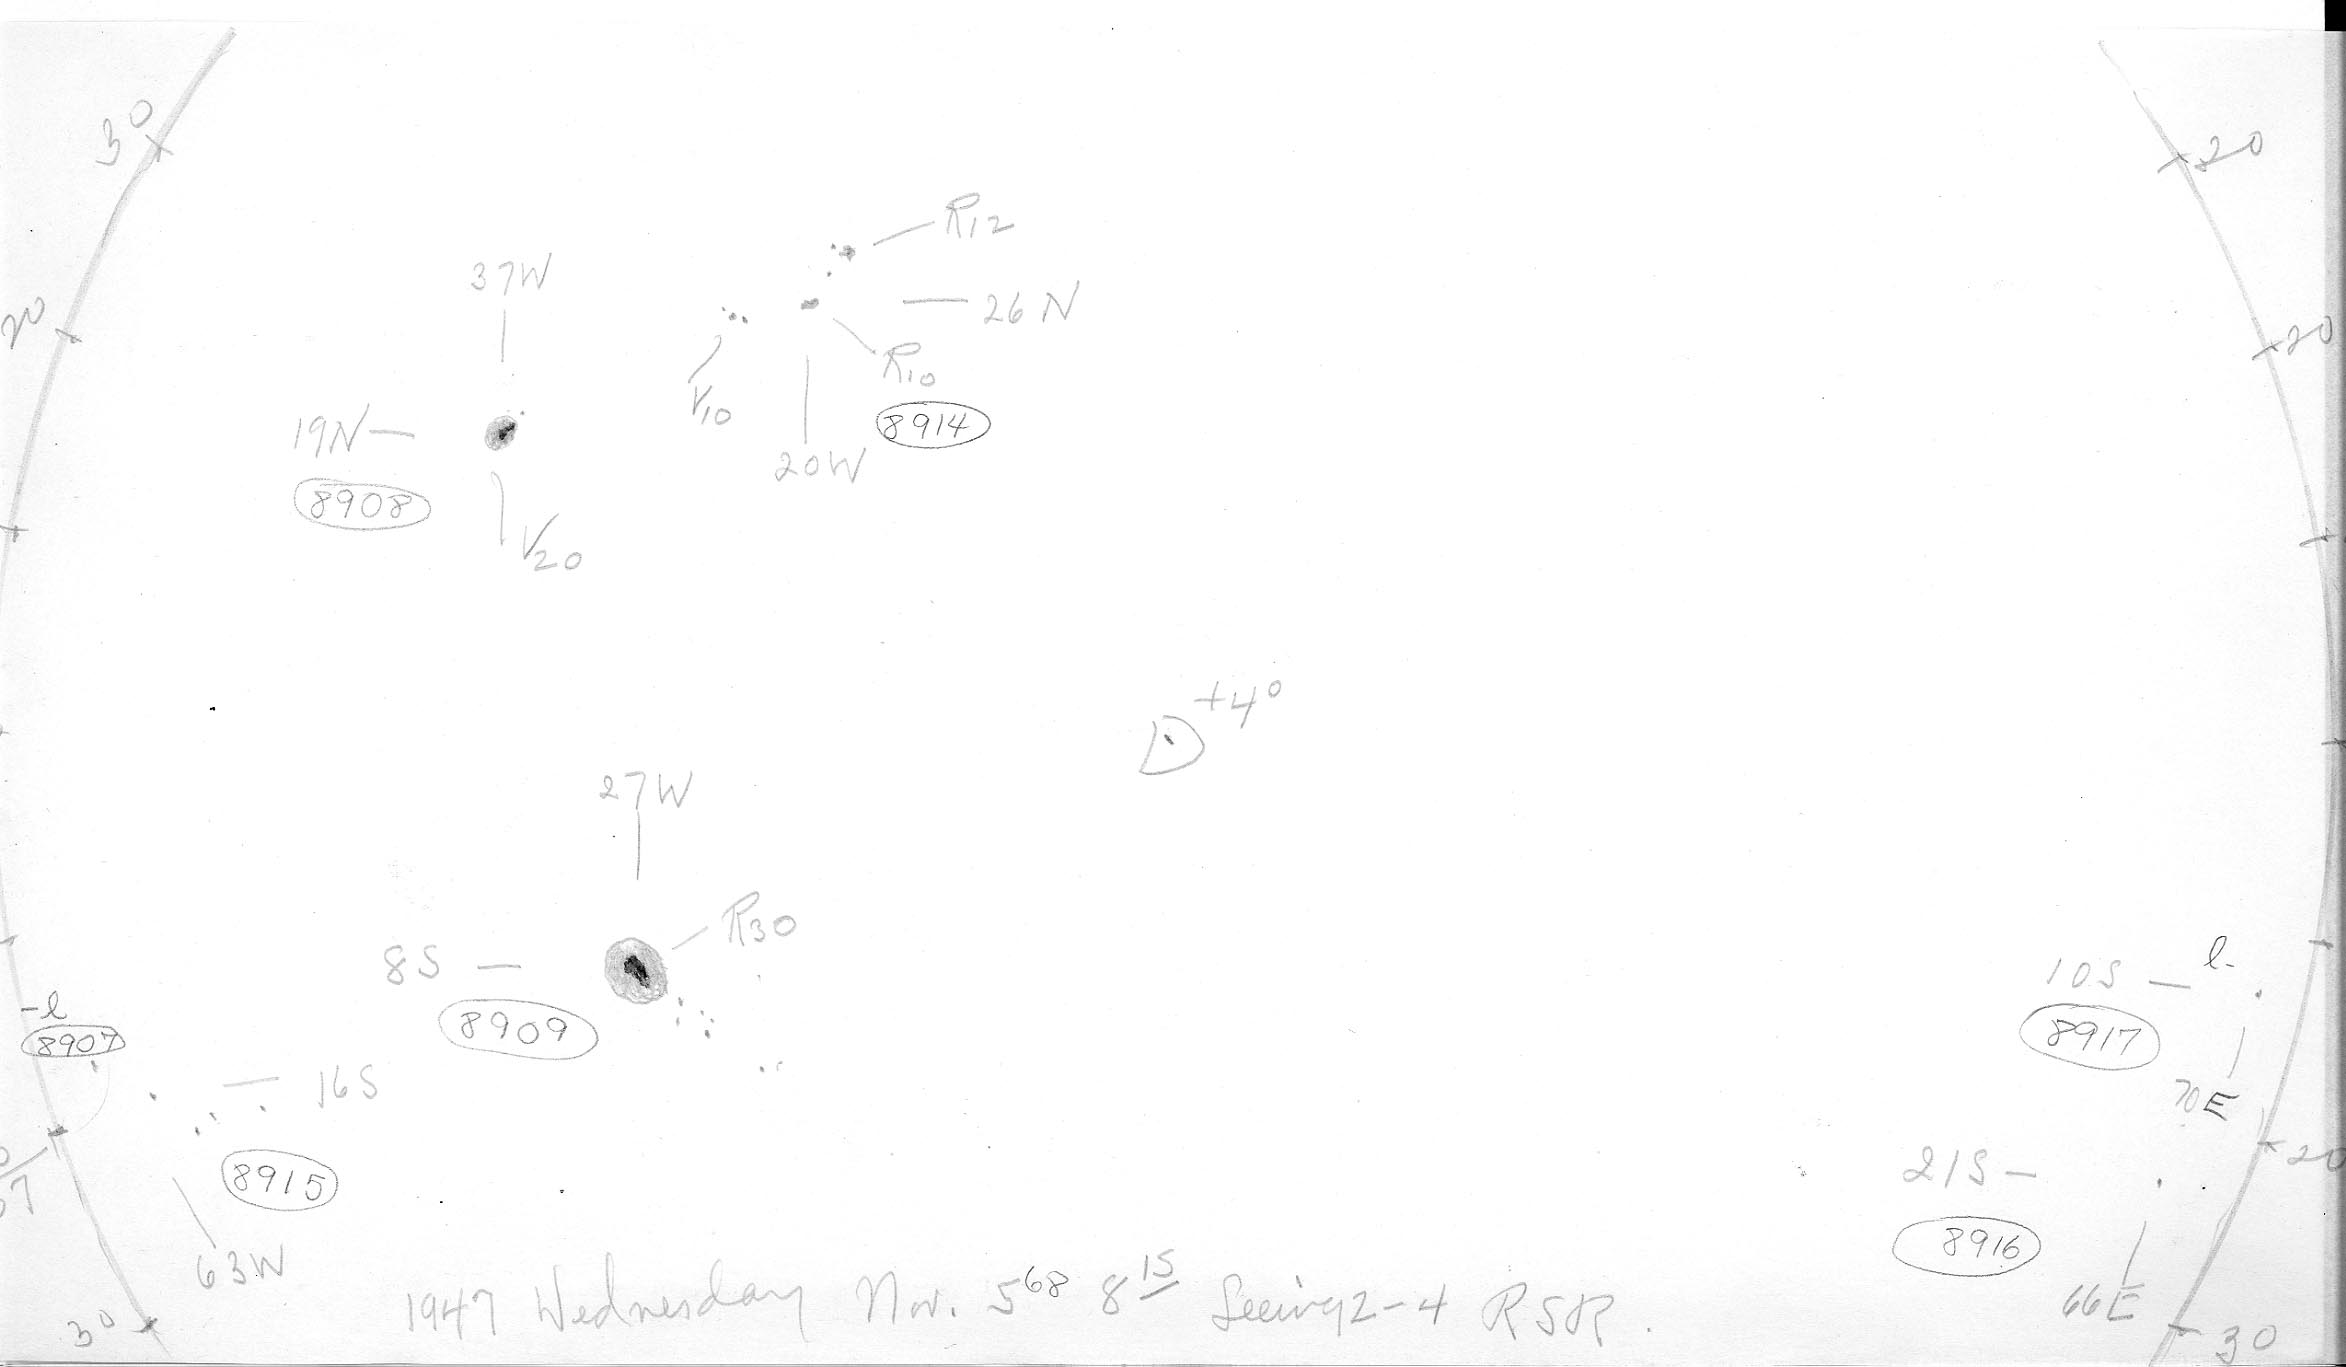 30
20
R12
37W
26 N
20
20
R10
V10
8914
19N
20W
8908
V20
+4°
27W
R30
8S
10S
l
-l
8909
8917
8907
16S
70E
20
21S
8915
8916
63W
66E
30
30
1947 Wednesday Nov. 5⁶⁸ 8¹⁵ Seeing 2-4 RSR.